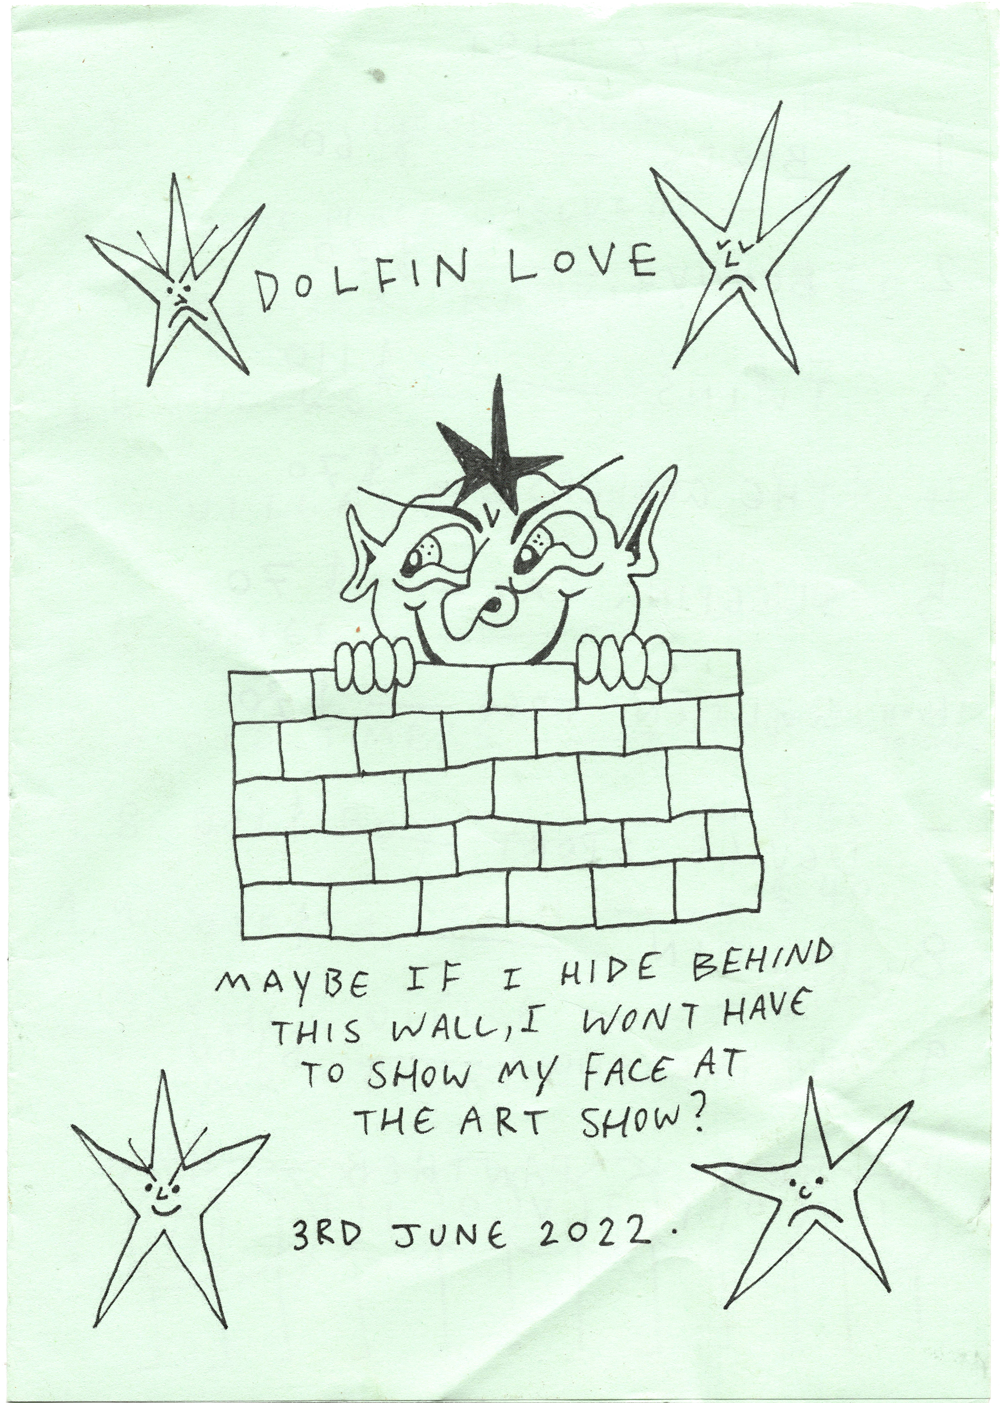 DOLFIN LOVE
MAYBE IF I HIDE BEHIND
THIS WALL, I WONT HAVE
TO SHOW MY FACE AT
THE ART SHOW?
3RD JUNE 2022.